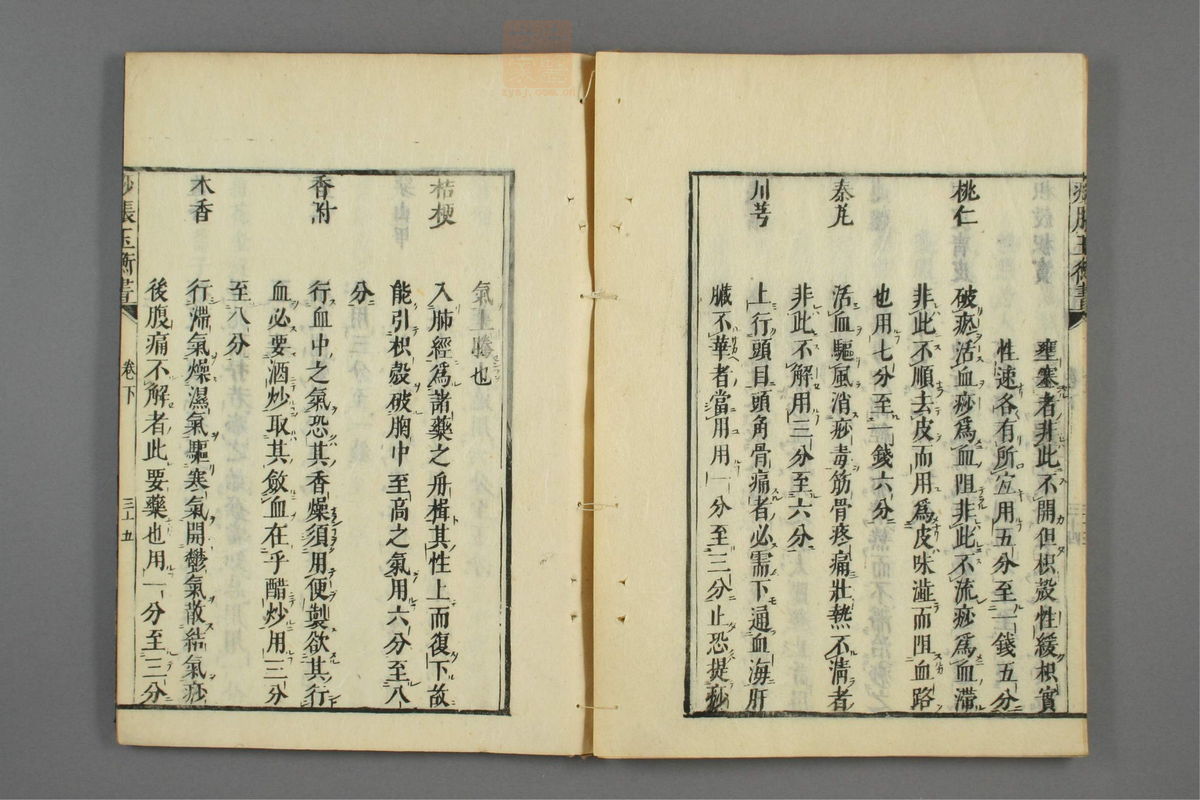 痧脹玉衡書
壅塞者非此不開但枳殼性緩枳實
性速各有所宜用五分至一錢五分
桃仁
破瘀活血痧為血阻非此不流痧為血滯
非此不順去皮而用為皮味澁而阻血路
也用七分至一錢六分
秦艽
活血驅風消痧毒筋骨疼痛壯熱不清者
非此不解用三分至六分
川芎
上行頭目頭角骨痛者必需下通血海肝
臟不華者當用用一分至三分止恐提痧
氣上騰也
桔梗
入肺經爲諸藥之舟楫其性上而復下故
能引枳殼破胸中至高之氣用六分至八
分
香附
行血中之氣恐其香燥須用便製欲其行
血必要酒炒取其斂血在乎醋炒用三分
至八分
木香
行滯氣燥濕氣驅寒氣開鬱氣散結氣痧
後腹痛不解者此要藥也用一分至三分
痧脹玉衡書
卷下
三十五
zysj.com.cn